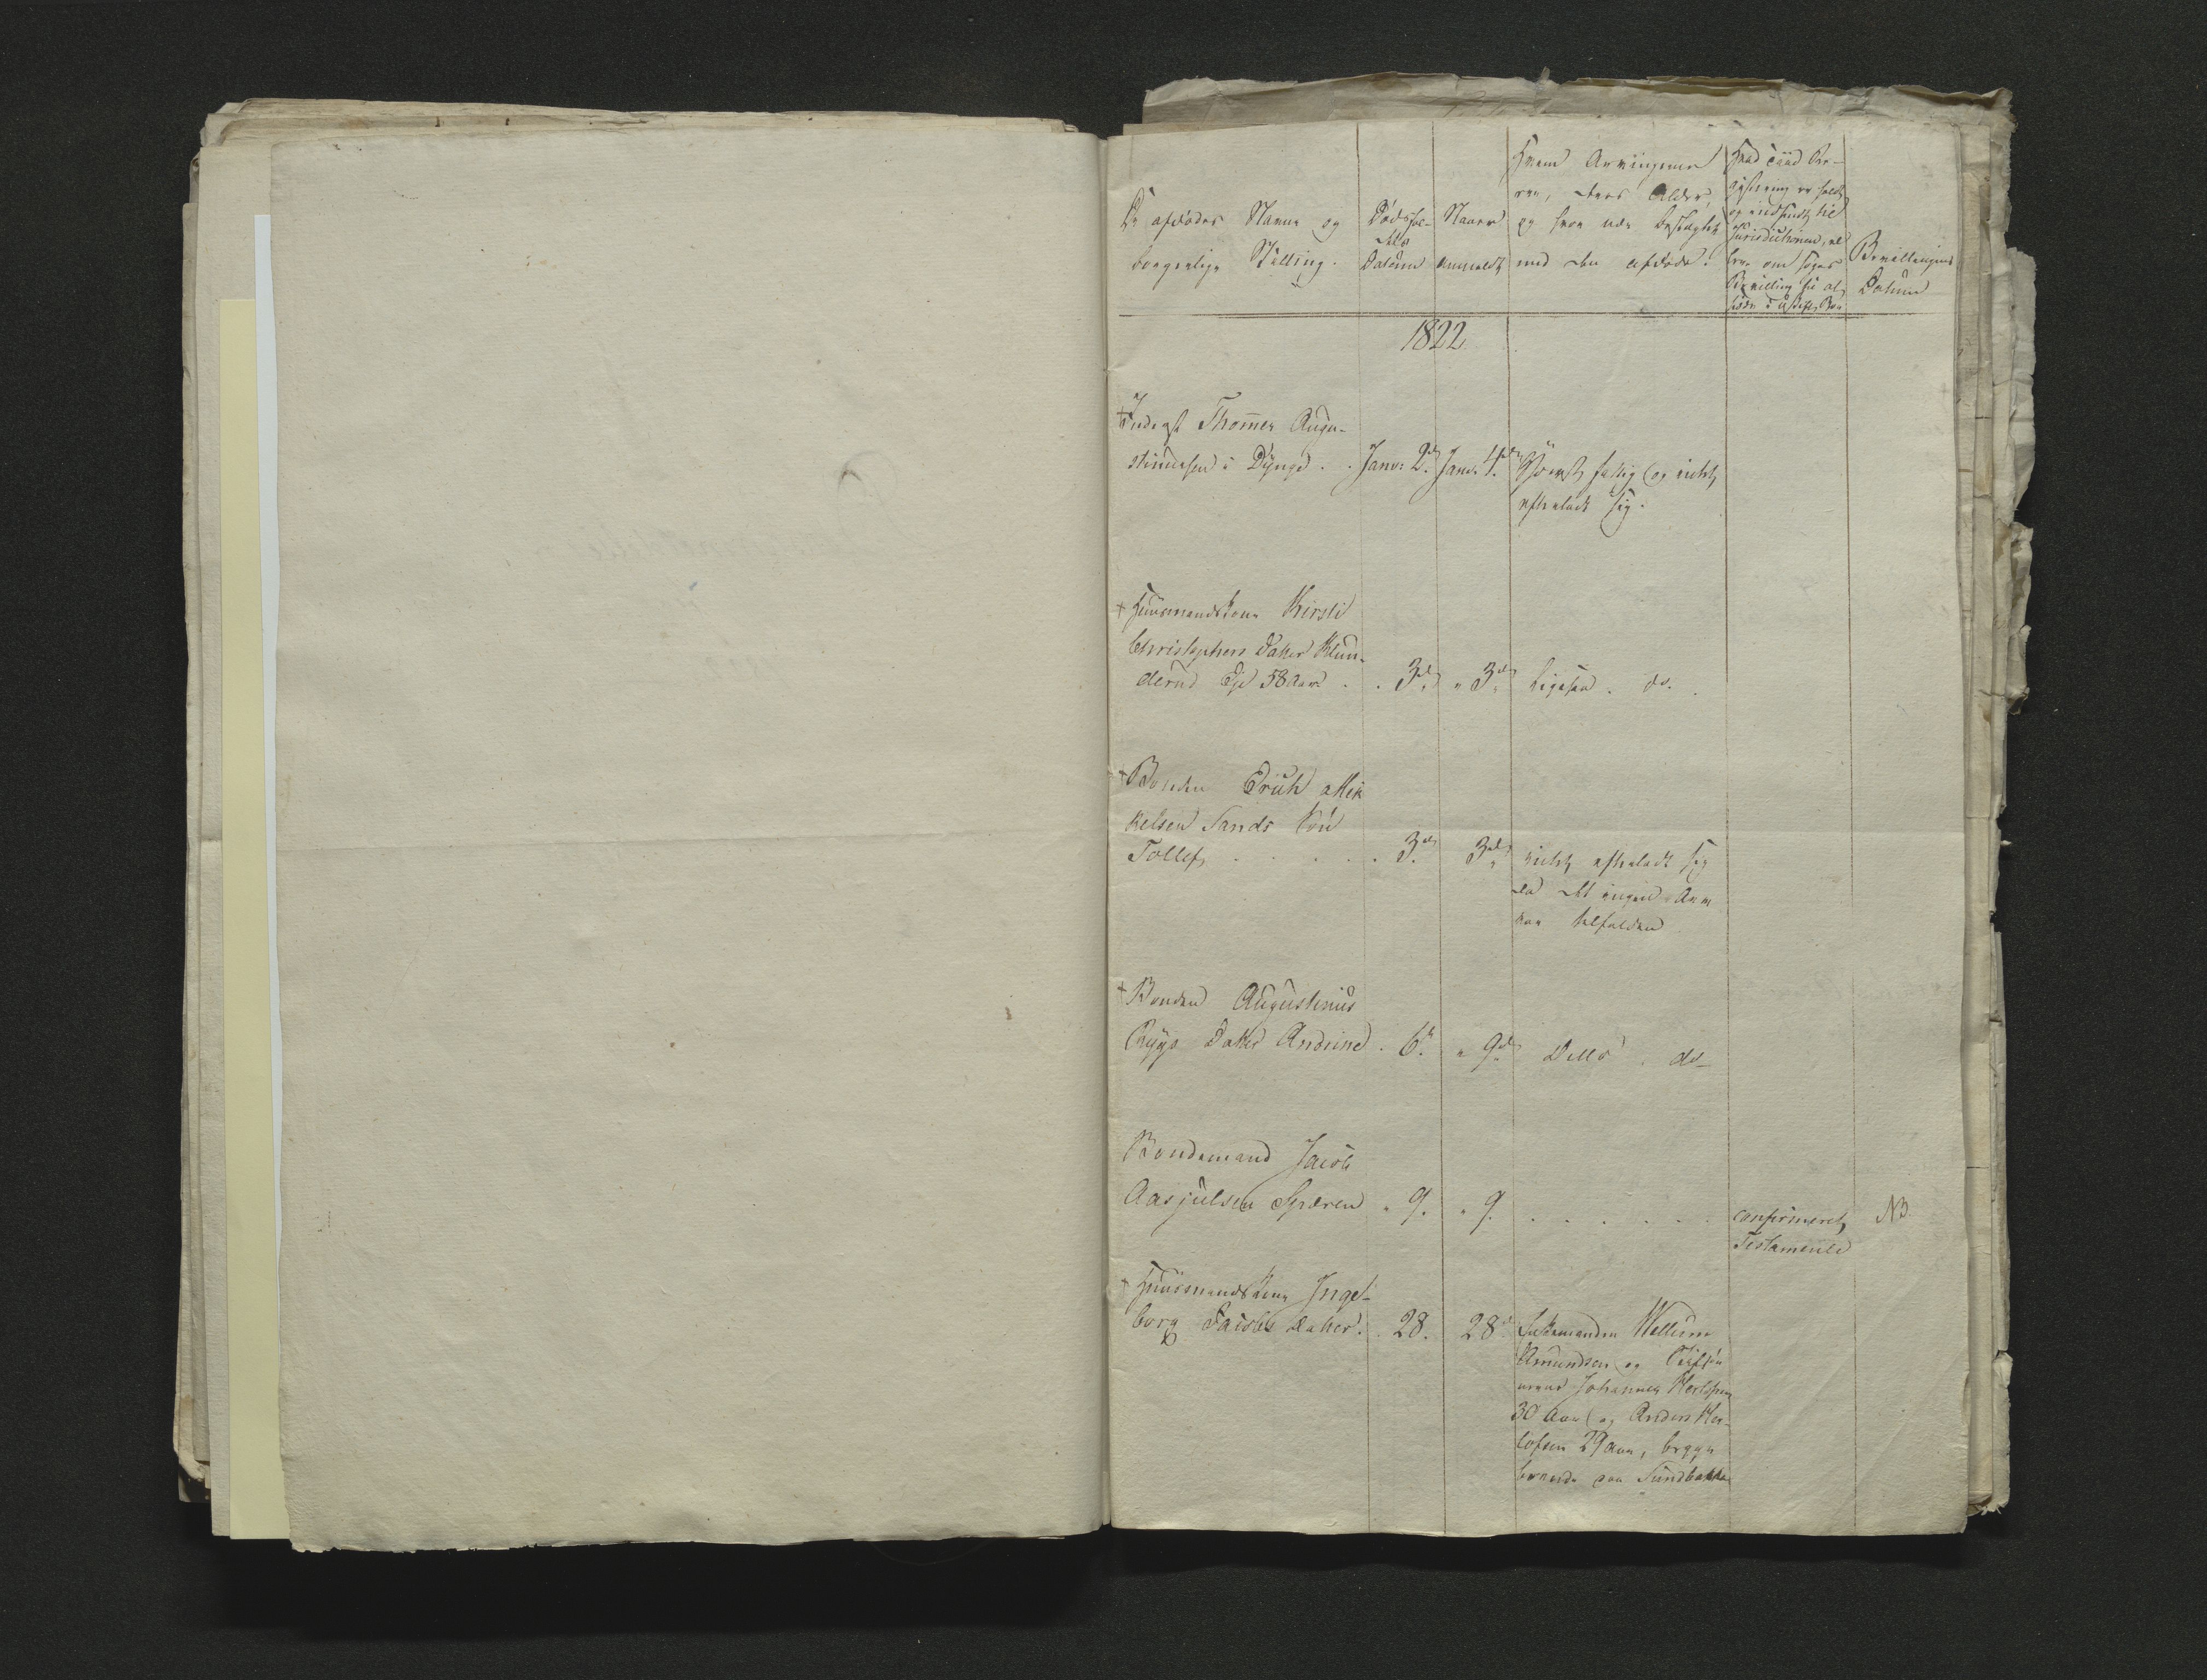 De afdødes Navne og
borgerlige Stilling.
Dødsfal-
dets
Datum
Naar
anmeldt
Hvem Arvingerne
ere, deres Alder,
og hvor nær beslægtet
med den afdøde.
Hvad Tiid Re-
gistrering er holdt
og indsendt til
Jurisdictionen, el
om søges
Bevilling til at
sidde i uskiftet Boe
Bevillingens
Datum
1822.
+ Inderst Thommes Augu-
stinussen i Dynge . . Janv: 2d. Janv. 4de yderst fattig og intet
efterladt sig.
+ Huusmandskone Kirsti
Christophers Datter Klun-
derud Eje 58 Aar . . 3d. " 3d. ligesaa . do. .
+ Bonden Erich Mik
kelsen Sands Søn
Tollef . . . . . 3d. 3d. intet efterladt sig
da det ingen Arv
var tilfalden
+ Bonden Augustinus
Rygs Datter Andrine . 6t. " 9d. Ditto . do-
Bondemand Jacob
Aasjulsen Speren " 9. " 9. . . . . . . confirmeret NB
Testamente
+ Huusmandskone Inge-
borg Jacobs Datter. . 28. 28d. Enkemanden Wellum
Amundsen og
Johannes Herlofsen
30 Aar og Anders Her-
lofsen 29 Aar, begge
boende paa Sundbakke